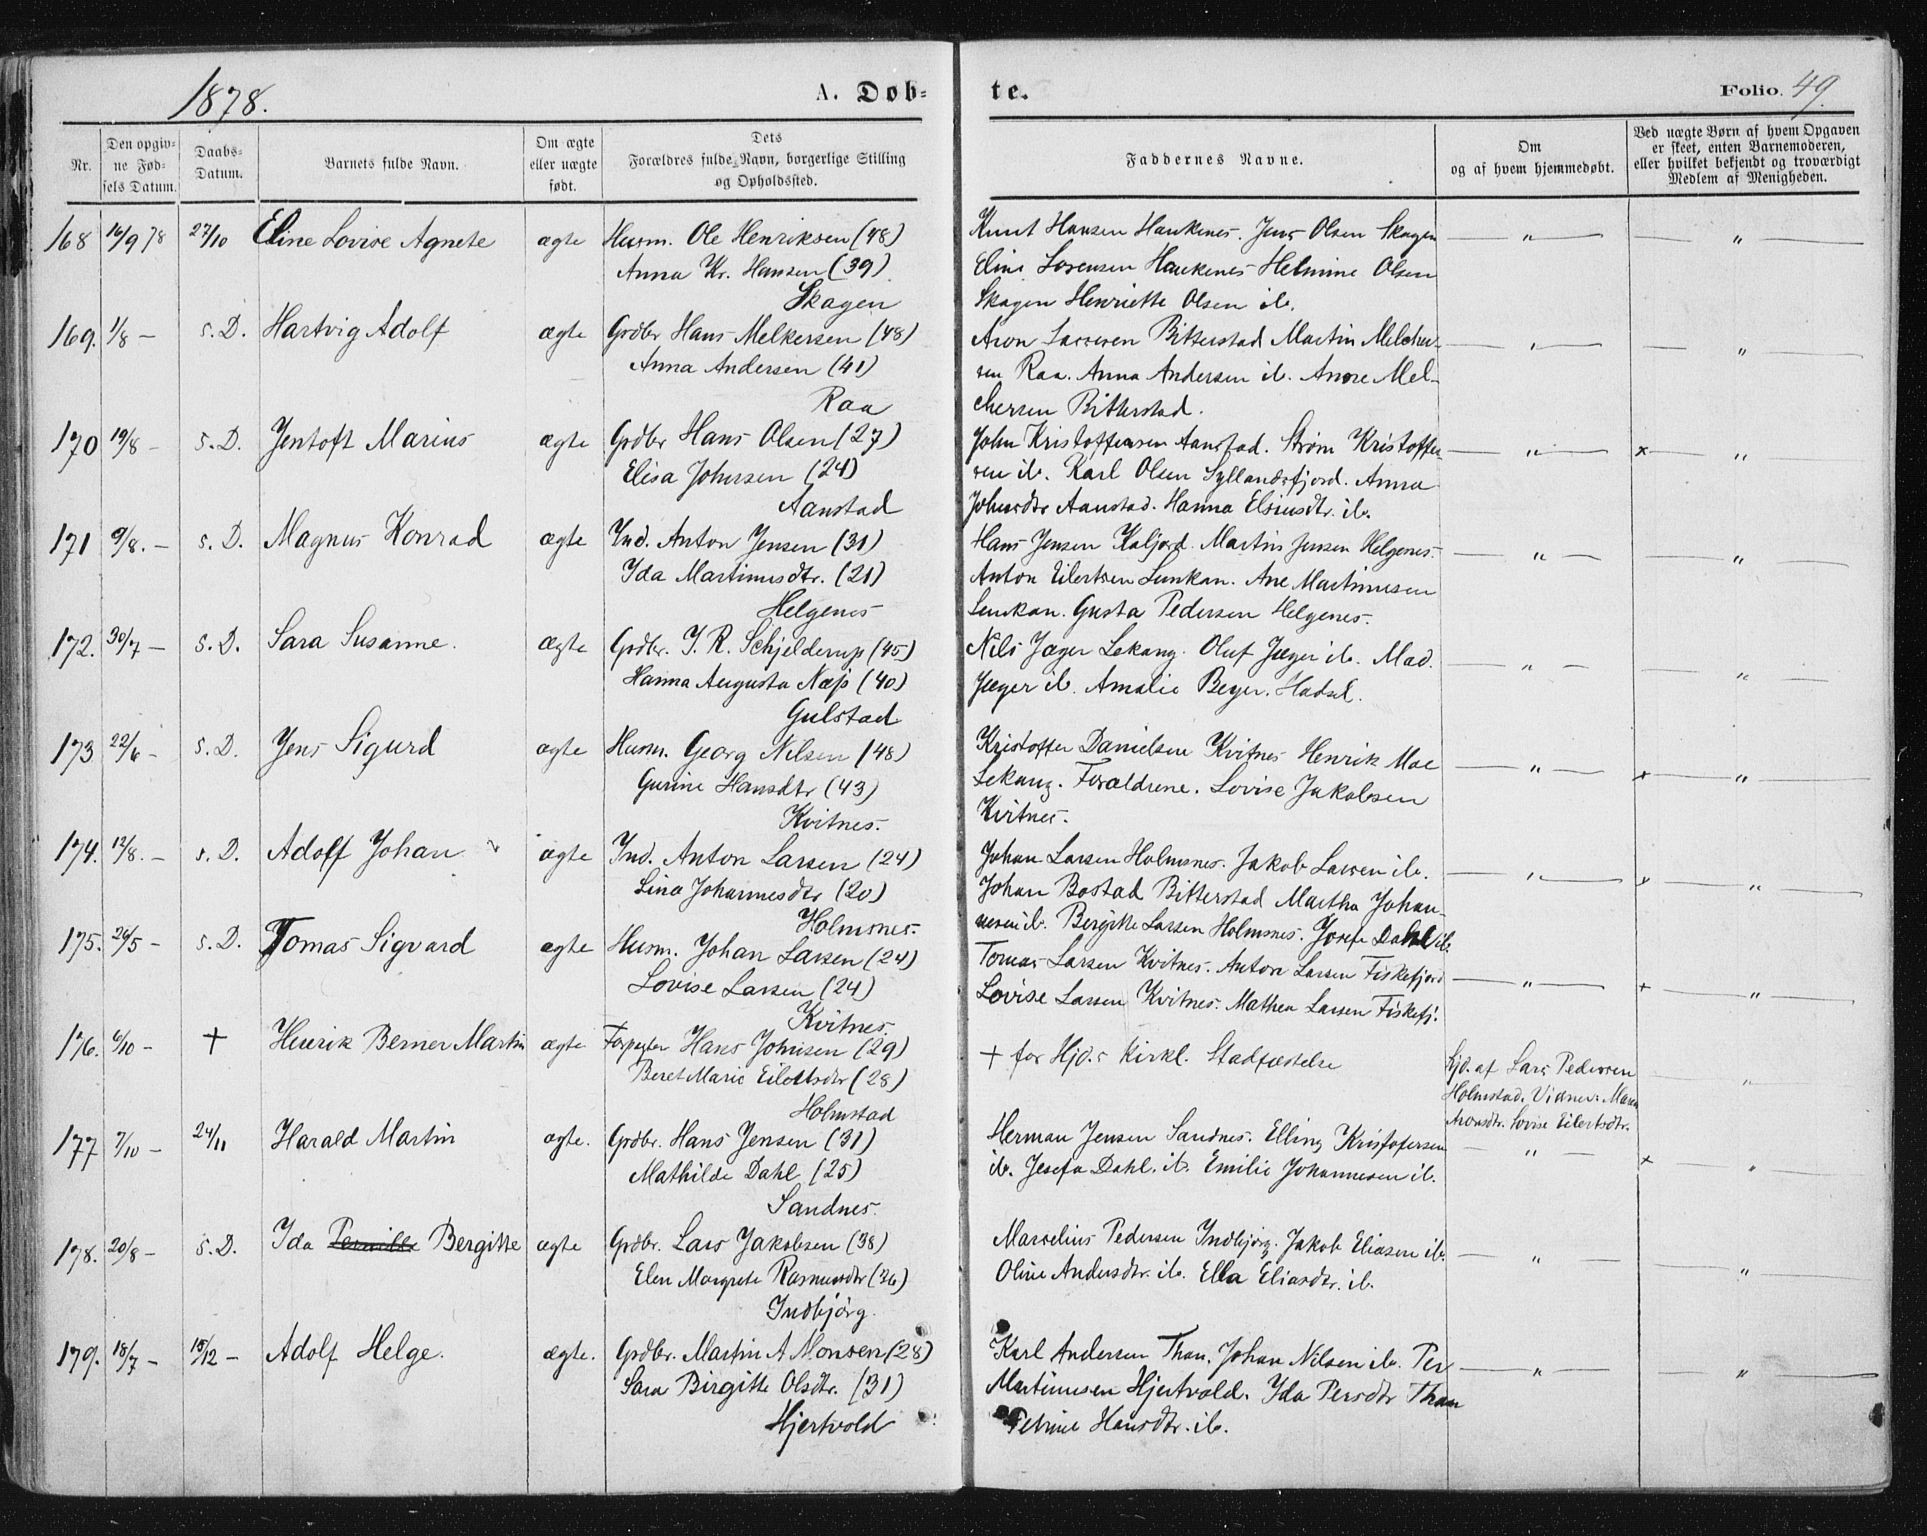 1878.
A. Døb-
te.
Folio. 49.
Nr.
Den opgiv-
ne Fød-
sels Datum.
Daabs-
Datum.
Barnets fulde Navn.
Om ægte
eller uægte
født.
Dets
Forældres fulde Navn, borgerlige Stilling
og Opholdssted.
Faddernes Navne.
Om
og af hvem hjemmedøbt.
Ved uægte Børn af hvem Opgaven
er skeet, enten Barnemoderen,
eller hvilket bekjendt og troværdigt
Medlem af Menigheden.
168 16/9 78 27/10 Eline Lovise Agnete ægte Husm. Ole Henriksen (48)
Anna Kr. Hansen (39)
Skagen
Knut Hansen Haukenes. Jens Olsen Skagen
Eline Sørensen Haukenes Helmine Olsen
Skagen Henriette Olsen ib. — " — — " —
169. 1/8 — s. D. Hartvig Adolf ægte Grdbr Hans Melkersen (48)
Anna Andersen (41)
Raa
Aron Larssen Bitterstad Martin Melcher-
sen Raa. Anna Andersen ib. Anne Mel-
chersen Bitterstad. — " — — " —
170 19/8 — s. D. Jentoft Marius ægte Grdbr Hans Olsen (27)
Elisa Johnsen (24)
Aanstad
John Kristoffersen Aanstad. Strøm Kristoffer-
sen ib. Karl Olsen Syllandsfjord. Anna
Johnsdtr Aanstad. Hanna Elsiusdtr. ib. — " — x — " —
171 9/8. — s. D. Magnus Konrad ægte Ind. Anton Jensen (31)
Ida Martinusdtr. (21)
Helgenes
Hans Jensen Kaljord. Martin Jensen Helgenes.
Anton Eilertsen Lunkan. Ane Martinusen
Lunkan. Gusta Pedersen Helgenes. — " — — " —
172. 30/7 — s. D. Sara Susanne. ægte Grdbr. J. R. Schjelderup (45)
Hanna Augusta Næss (40)
Gulstad
Nils Jæger Lekang. Oluf Jæger ib. Mad.
Jæger ib. Amalie Beyer. Hadsel. — " — — " —
173 22/6 — s. D. Jens Sigurd ægte Husm. Georg Nilsen (48)
Gurine Hansdtr (43)
Kvitnes.
Kristoffer Danielsen Kvitnes Henrik Moe
Lekang. Forældrene. Lovise Jakobsen
Kvitnes. — " — x — " —
174. 12/8. — s. D. Adolf Johan ægte Ind. Anton Larsen (24)
Lina Johannesdtr (20)
Holmsnes.
Johan Larsen Holmsnes. Jakob Larsen ib.
Johan Bostad Bitterstad Martha Johan-
nesen ib. Bergitte Larsen Holmsnes. Josefa Dahl ib. — " — x — " —
175. 26/5 — s. D. Tomas Sigvard ægte Husm. Johan Larsen (24)
Lovise Larsen (24)
Kvitnes.
Tomas Larsen Kvitnes. Anton Larsen Fiskefjord
Lovise Larsen Kvitnes. Mathea Larsen Fiskefj. — " — x — " —
176. 6/10 — + Henrik Berner Martin ægte Forpagter Hans Johnsen (29)
Beret Marie Eilertsdtr (28)
Holmstad
+ før Hjd.s kirkl. Stadfæstelse
Hjd. af Lars Pedersen
Holmstad. Vidner: Maren
Aronsdtr. Lovise Eilertsdtr. — " —
177 7/10 — 24/11 Harald Martin ægte. Grdbr. Hans Jensen (31)
Mathilde Dahl (25)
Sandnes.
Herman Jensen Sandnes. Elling Kristofersen
ib. Josefa Dahl. ib. Emilie Johannesen ib. — " — x "
178. 20/8 — s. D. Ida Pernille Bergitte ægte Grdbr. Lars Jakobsen (38)
Elen Margrete Rasmusdtr (36)
Indbjörg.
Marselius Pedersen Indbjörg. Jakob Eliasen ib.
Oline Andersdtr. ib. Ella Eliasdtr. ib. — " — — " —
179. 18/7 — 15/12 — Adolf Helge. ægte. Grdbr. Martin A Monsen (28)
Sara Birgitte Olsdtr. (31)
Hjertvold
Karl Andersen Than. Johan Nilsen ib. Per
Martinusen Hjertvold. Ida Persdtr Than
Petrine Hansdtr. ib. — " — — " —